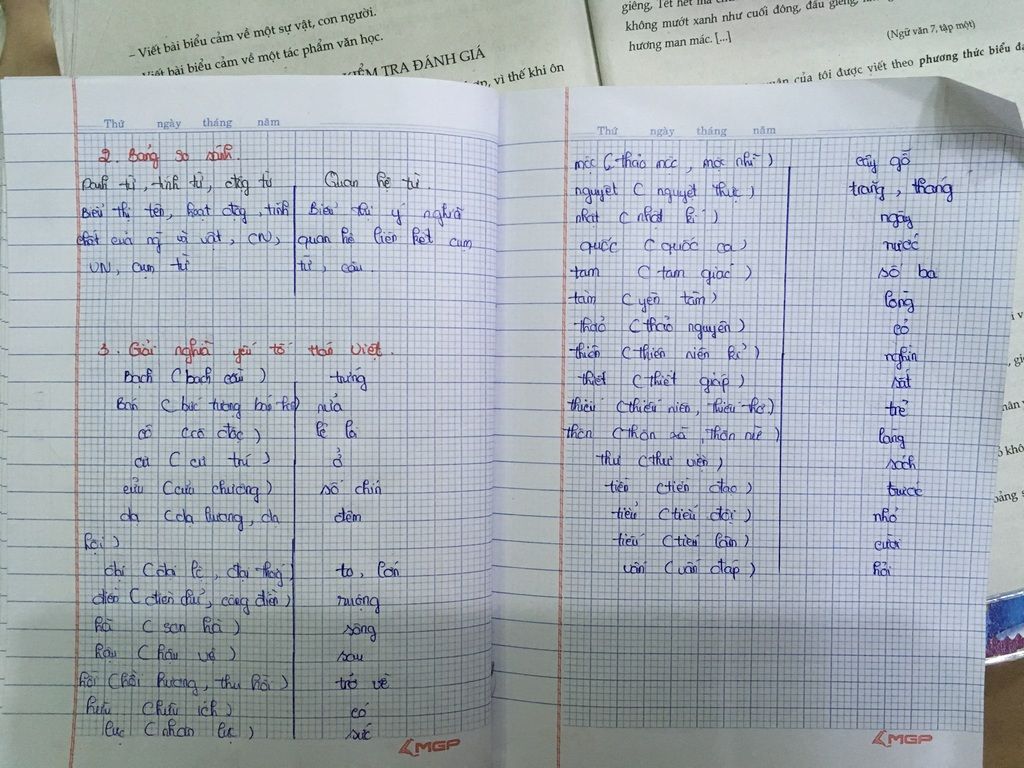 – Viết bài biểu cảm về một sự vật, con người.
Viết bài biểu cảm về một tác phẩm văn học.
KIỂM TRA ĐÁNH GIÁ
vì thế khi ôn
giêng, Tết hết mà
không mướt xanh như cuối đông, đầu giêng,
hương man mác. [...]
(Ngữ văn 7, tập một)
của tôi được viết theo phương thức biểu đạ
Thứ ngày tháng năm
2. Bảng so sánh.
Danh từ, tính từ, động từ Quan hệ từ.
Biểu thị tên, hoạt động, tính Biểu thị ý nghĩa
chất của ng̃ và vật, CN, quan hệ liên kết cụm
VN, cụm từ từ, câu.
3. Giải nghĩa yếu tố Hán Việt.
Bạch (bạch cầu) trắng
Bán (bức tượng bán thân) nửa
cô (cô độc) lẻ loi
cư (cư trú) ở
cửu (cửu chương) số chín
dạ (dạ hương, dạ đêm
hội)
đại (đại lộ, đại thắng) to, lớn
điền (điền chủ, công điền) ruộng
hà (sơn hà) sông
hậu (hậu vệ) sau
hồi (hồi hương, thu hồi) trở về
hữu (hữu ích) có
lực (nhân lực) sức
MGP
Thứ ngày tháng năm
mộc (thảo mộc, mộc nhĩ) cây gỗ
nguyệt (nguyệt thực) trăng, tháng
nhật (nhật kí) ngày
quốc (quốc ca) nước
tam (tam giác) số ba
tâm (yên tâm) lòng
thảo (thảo nguyên) cỏ
thiên (thiên niên kỉ) nghìn
thiết (thiết giáp) sắt
thiếu (thiếu niên, thiếu thời) trẻ
thôn (thôn xã, thôn nữ) làng
thư (thư viện) sách
tiền (tiền đạo) trước
tiểu (tiểu đội) nhỏ
tiếu (tiếu lâm) cười
vấn (vấn đáp) hỏi
MGP